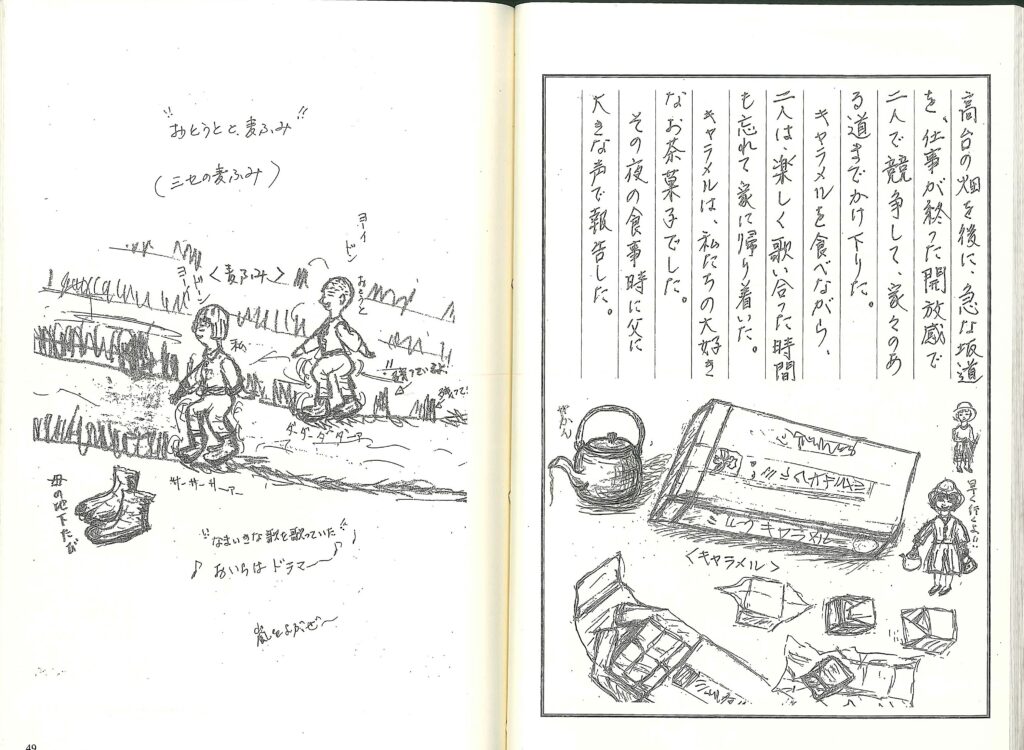 高台の畑を後に、急な坂道
を、仕事が終った開放感で
二人で競争して、家々のあ
る道までかけ下りた。
キャラメルを食べながら、
二人は、楽しく歌い合った時間
も忘れて家に帰り着いた。
キャラメルは、私たちの大好き
なお茶菓子でした。
その夜の食事時に父に
大きな声で報告した。
やかん
ミルクキャラメル
<キャラメル>
早く行くよ!!
"おとうとと麦ふみ"
(三センの麦ふみ)
<麦ふみ>
ヨーイ
ドン
おとうと
ヨーイ
ドン
私
ダーダーダダーァ
サーサーサーァー
母の地下たび
"なまいきな歌を歌っていた"
♪ おいらはドラマー ♪
嵐をよぶぜ〜
49